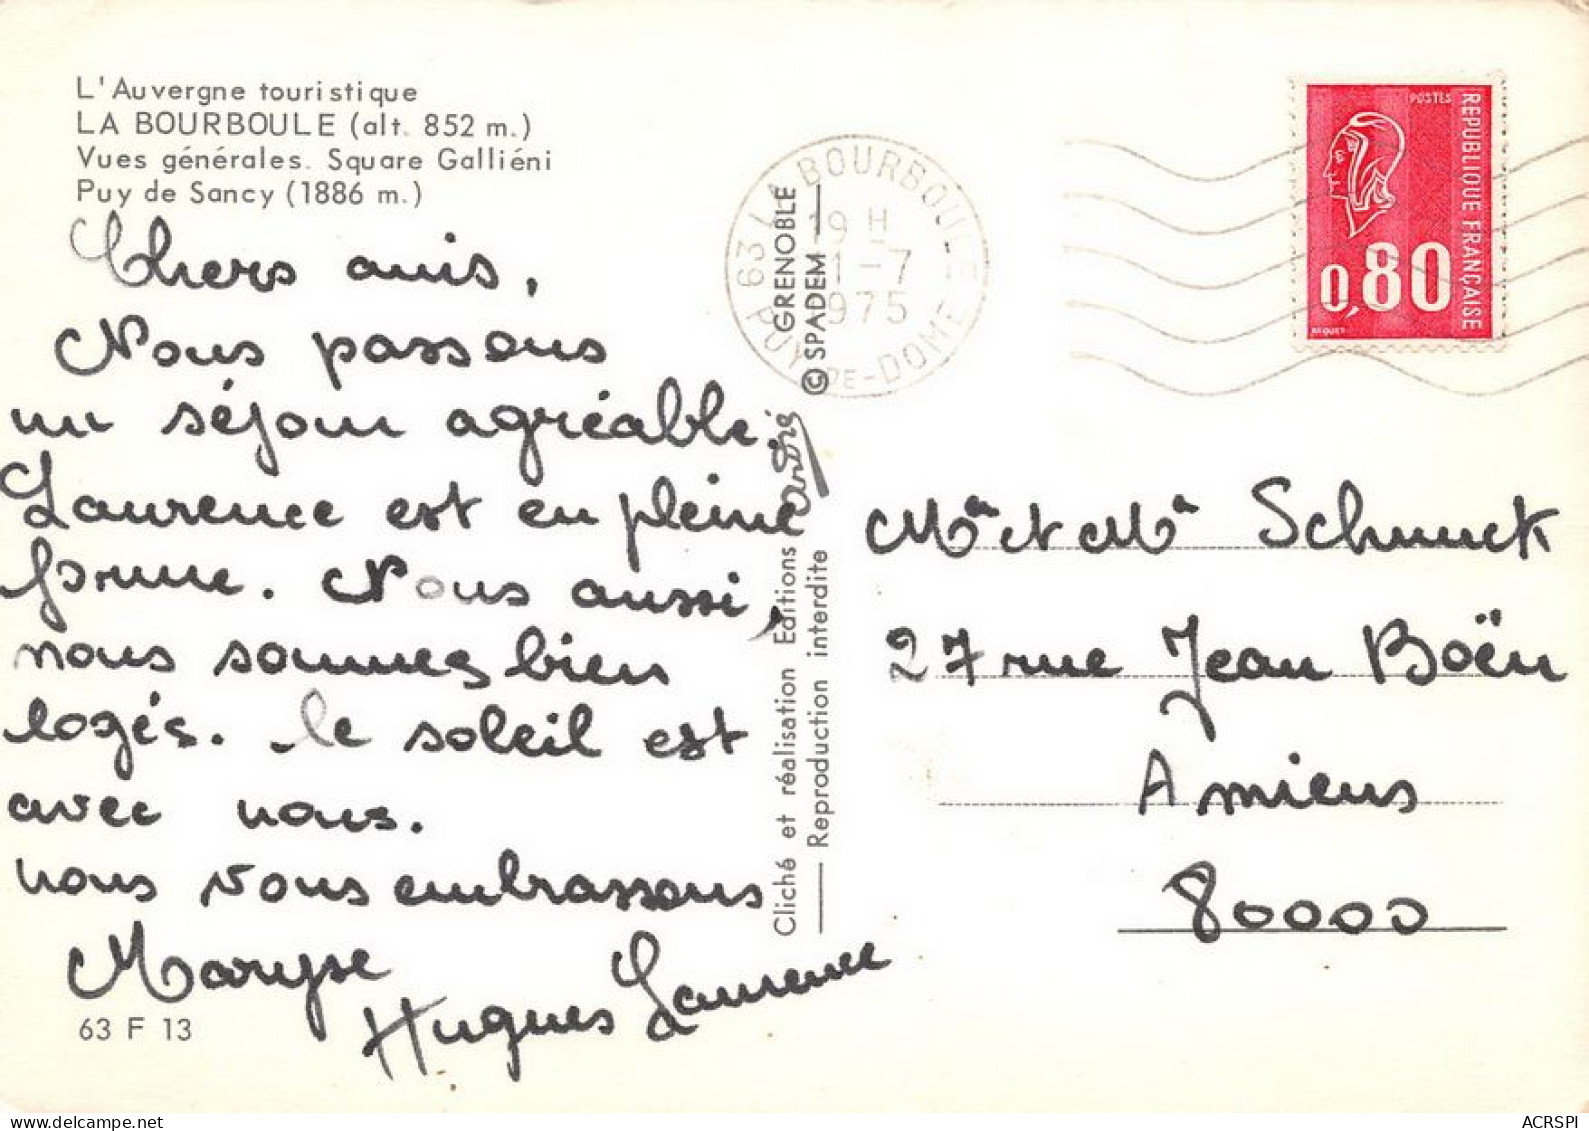 L'Auvergne touristique
LA BOURBOULE (alt. 852 m.)
Vues générales. Square Galliéni
Puy de Sancy (1886 m.)
Chers amis,
Nous passons
un séjour agréable.
Laurence est en pleine
forme. Nous aussi,
nous sommes bien
logés. le soleil est
avec nous.
nous vous embrassons
Maryse
Hugues Laurence
63 F 13
Cliché et réalisation Editions André GRENOBLE
Reproduction interdite
© SPADEM
63 LA BOURBOULE
19 H
1-7
1975
PUY-DE-DOME
POSTES
REPUBLIQUE FRANÇAISE
0,80
BEQUET
Mr et Mme Schunck
27 rue Jean Boën
Amiens
80000
www.delcampe.net
ACRSPI